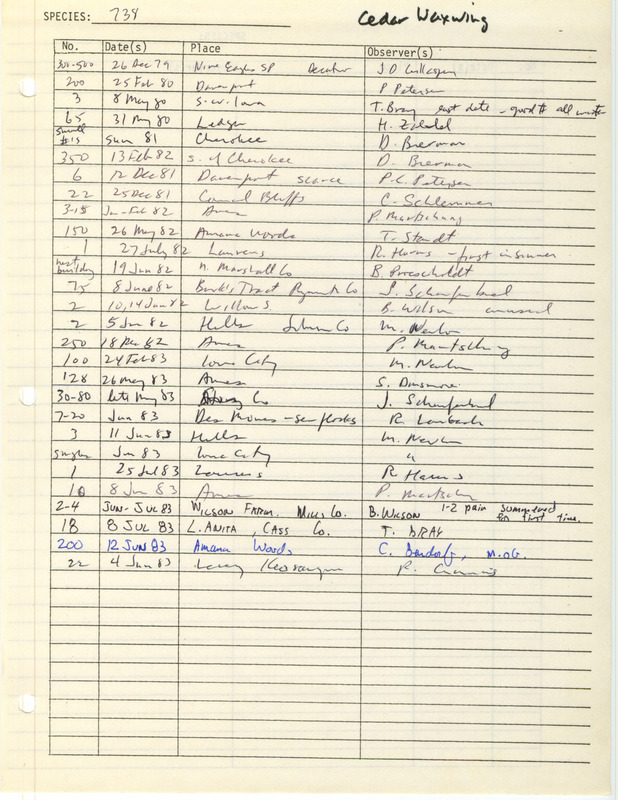 SPECIES: 738 Cedar Waxwing
No. Date(s) Place Observer(s)
300-500 26 Dec 79 Nine Eagles SP Decatur J D
200 25 Feb 80 Davenport P Petersen
3 8 May 80 S.W. Iowa T. Bray east date - good # all winter
65 31 May 80 Ledges H. Zaletel
small #'s Sum 81 Cherokee D. Bierman
350 13 Feb 82 S. of Cherokee D. Bierman
6 12 Dec 81 Davenport scarce P.C. Petersen
22 25 Dec 81 Council Bluffs C. Schlemmer
3-15 Jan-Feb 82 Ames P. Martsching
150 26 May 82 Amana Woods T. Staudt
1 27 July 82 Laurens R. Harms - first in summer
nest building 19 Jun 82 n. Marshall Co B. Proescholdt
75 8 June 82 Co J. Schaufenbuel
2 10,14 Jun 82 Willow S. B. Wilson unusual
2 5 Jun 82 Hills Johnson Co M. Newlon
250 18 Dec 82 Ames P. Martsching
100 24 Feb 83 Iowa City M. Newlon
128 26 May 83 Ames S. Dinsmore
30-80 late May 83 Co J. Schaufenbuel
7-20 Jun 83 Des Moines - sev flocks R. Cambach
3 11 Jun 83 Hills M. Newlon
singles Jun 83 Iowa City "
1 25 Jul 83 Laurens R Harms
10 8 Jun 83 Ames P. Martsching
2-4 JUN-JUL 83 WILSON FARM, MILLS CO. B. WILSON 1-2 pair summered for first time.
18 8 JUL 83 L. ANITA, CASS CO. T. BRAY
200 12 JUN 83 Amana Woods C. Bendorf, M.OB.
22 4 Jun 83 Lacey Keosauqua R. Cummins